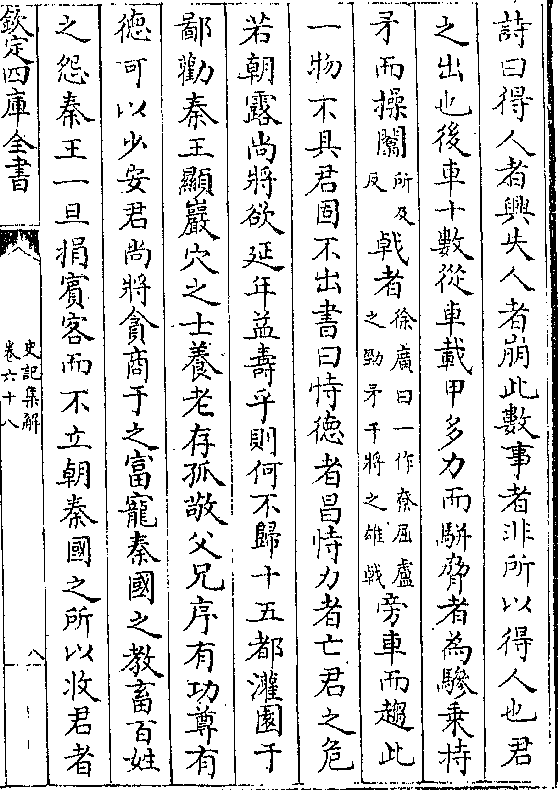 詩曰得人者興失人者崩此數事者非所以得人也君
之出也後車十數從車載甲多力而駢脅者為驂乗持
矛而操闟所及反㦸者徐廣曰一作寮屈盧之勁矛干將之雄㦸旁車而趨此
一物不具君固不出書曰恃德者昌恃力者亡君之危
若朝露尚將欲延年益壽乎則何不歸十五都灌園于
鄙勸秦王顯巖穴之士養老存孤敬父兄序有功尊有
德可以少安君尚將貪商于之富寵秦國之教畜百姓
之怨秦王一旦捐賓客而不立朝秦國之所以收君者
欽定四庫全書
史記集解
卷六十八
八